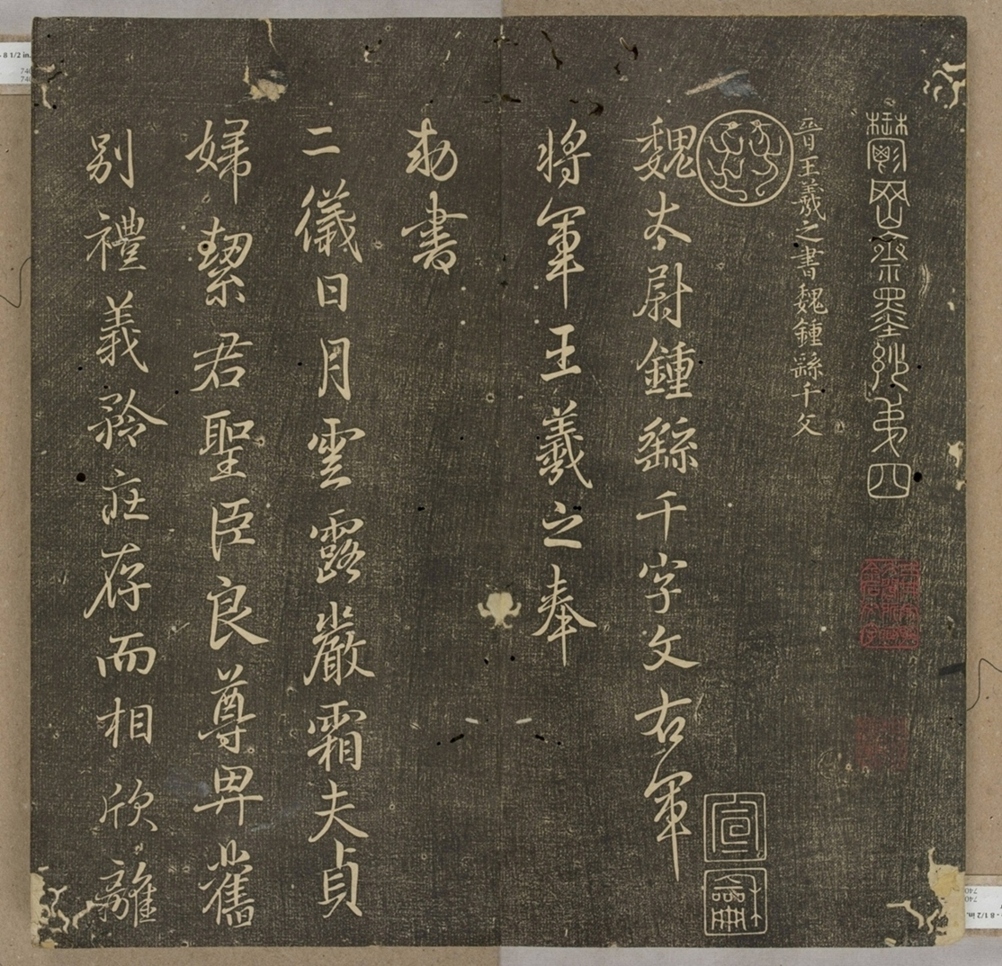 鬱岡齋墨妙第四
晉王羲之書魏鍾繇千文
魏太尉鍾繇千字文右軍
將軍王羲之奉
勑書
二儀日月雲露嚴霜夫貞
婦潔君聖臣良尊卑舊
別禮義矜莊存而相欣離
宣
龢
8 1/2 in.